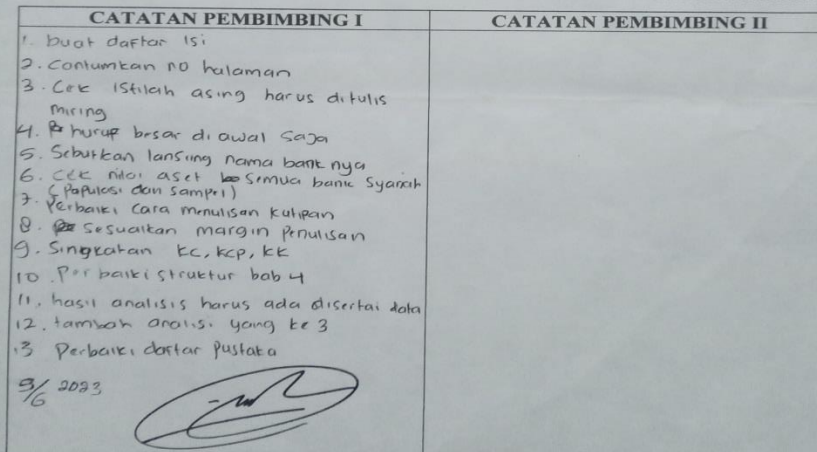 CATATAN PEMBIMBING I
CATATAN PEMBIMBING II
1. buat daftar Isi
2. Contumkan no halaman
3. Cek istilah asing harus ditulis
miring
4. hurup besar di awal saja
5. Sebutkan lansung nama bank nya
6. cek nilai aset semua bank syariah
(Populasi dan sampel)
7. Perbaiki cara menulisan kutipan
8. Sesuaikan margin penulisan
9. Singkatan KC, KCP, KK
10. Perbaiki struktur bab 4
11. hasil analisis harus ada disertai data
12. tambah analisi yang ke 3
13 Perbaiki daftar pustaka
9/6 2023